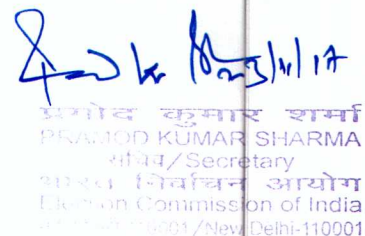 23/11/17
प्रमोद कुमार शर्मा
PRAMOD KUMAR SHARMA
सचिव/Secretary
भारत निर्वाचन आयोग
Election Commission of India
/New Delhi-110001